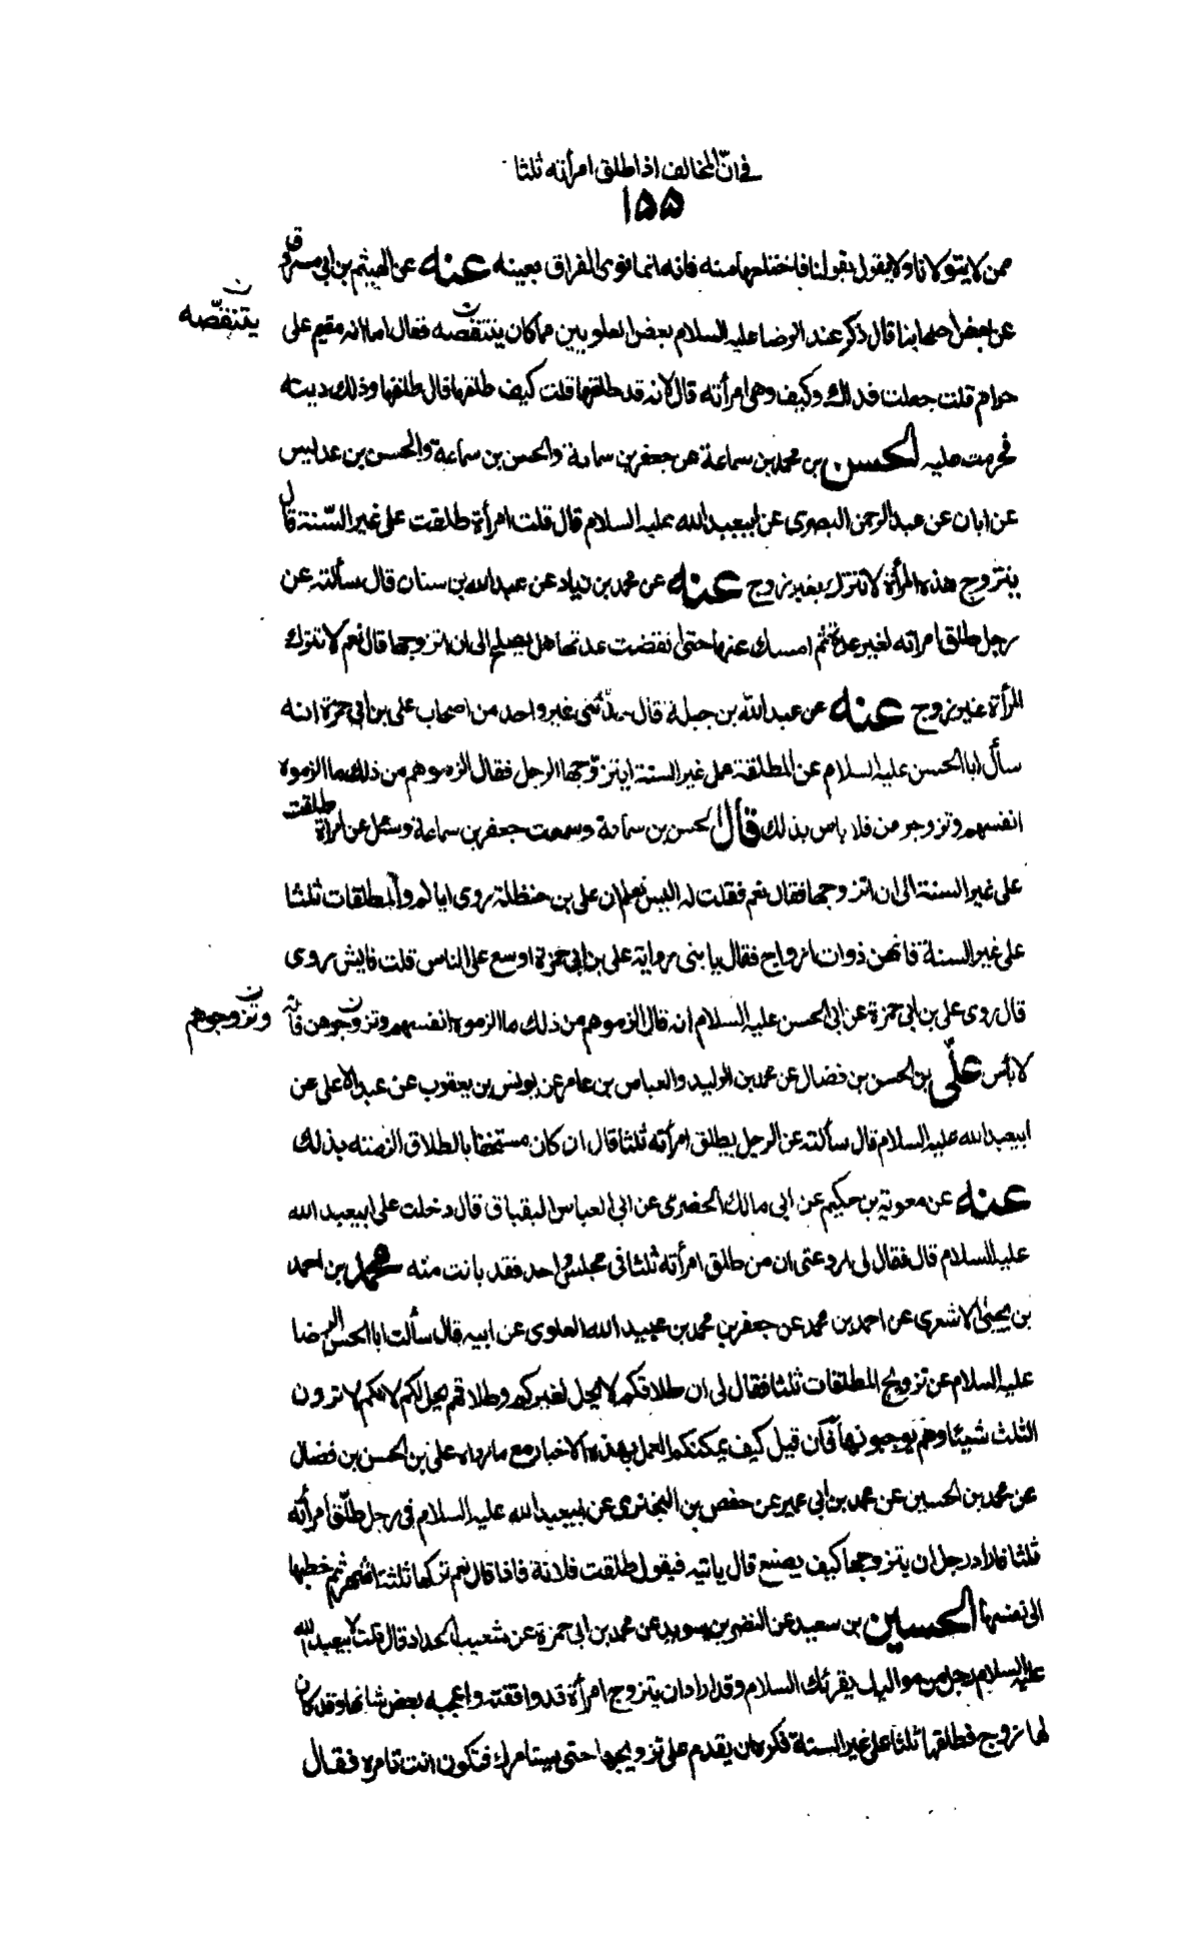 في انّ المخالف اذا طلق امرأته ثلثا
١٥٥
ممن لا يتولانا ولا يقول بقولنا فاختلعها منه فانه انما نوى الفراق بعينه عنه عن الهيثم بن ابي مسروق
عن بعض اصحابنا قال ذكر عند الرضا عليه السلام بعض العلويين مما كان ينتقصه فقال اما انه مقيم على
يتنقّصه ن
حرام قلت جعلت فداك وكيف وهي امرأته قال لانه قد طلقها قلت كيف طلقها قال طلقها وذلك دينه
فحرمت عليه الحسن بن محمد بن سماعة عن جعفر بن سماعة والحسن بن سماعة والحسن بن عدليس
عن ابان عن عبد الرحمن البصري عن ابيعبد الله عليه السلام قال قلت امرأة طلقت على غير السّنة قال
يتزوج هذه المرأة لا تترك بغير زوج عنه عن محمد بن زياد عن عبد الله بن سنان قال سألته عن
رجل طلق امراته لغير عدة ثم امسك عنها حتى انقضت عدتها هل يصلح لي ان اتزوجها قال نعم لا تترك
المرأة بغير زوج عنه عن عبد الله بن جبلة قال حدّثني غير واحد من اصحاب علي بن ابي حمزة انه
سأل ابا الحسن عليه السلام عن المطلقة على غير السنة ايتزوّجها الرجل فقال الزموهم من ذلك ما الزموه
انفسهم وتزوجوهن فلا باس بذلك قال الحسن بن سماعة وسمعت جعفر بن سماعة وسئل عن امرأة طلقت
على غير السنة الي ان اتزوجها فقال نعم فقلت له اليس تعلم ان علي بن حنظلة روى اياكم والمطلقات ثلثا
على غير السنة فانهن ذوات ازواج فقال يا بني رواية علي بن ابي حمزة اوسع على الناس قلت فايش روى
قال روى علي بن ابي حمزة عن ابي الحسن عليه السلام انه قال الزموهم من ذلك ما الزموه انفسهم وتزوجوهن فانه
وتزوجوهم ن
لا بأس عليّ بن الحسن بن فضال عن محمد بن الوليد والعباس بن عامر عن يونس بن يعقوب عن عبد الاعلى عن
ابيعبد الله عليه السلام قال سألته عن الرجل يطلق امرأته ثلثا قال ان كان مستخفا بالطلاق الزمته بذلك
عنه عن معوية بن حكيم عن ابي مالك الحضرمي عن ابي العباس البقباق قال دخلت على ابيعبد الله
عليه السلام قال فقال لي ارو عني ان من طلق امرأته ثلثا في مجلس واحد فقد بانت منه محمد بن احمد
بن يحيى الاشعري عن احمد بن محمد عن جعفر بن محمد بن عبيد الله العلوي عن ابيه قال سألت ابا الحسن الرضا
عليه السلام عن تزويج المطلقات ثلثا فقال لي ان طلاقكم لا يحل لغيركم وطلاقهم يحل لكم لانكم لا ترون
الثلث شيئا وهم يوجبونها فان قيل كيف يمكنكم العمل بهذه الاخبار مع ما رواه علي بن الحسن بن فضال
عن محمد بن الحسين عن محمد بن ابي عمير عن حفص بن البختري عن ابيعبد الله عليه السلام في رجل طلّق امرأته
ثلثا فاراد رجل ان يتزوجها كيف يصنع قال ياتيه فيقول طلقت فلانة فاذا قال نعم تركها ثلثة اشهر ثم خطبها
الى نفسها الحسين بن سعيد عن النضر بن سويد عن محمد بن ابي حمزة عن شعيب الحداد قال قلت لابيعبد الله
عليه السلام رجل من مواليك يقرئك السلام وقد اراد ان يتزوج امرأة قد وافقته واعجبه بعض شانها وقد كان
لها زوج فطلقها ثلثا على غير السنة فكره ان يقدم على تزويجها حتى يستامرك فتكون انت تامره فقال